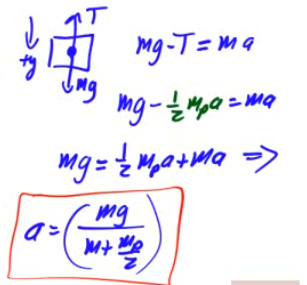 T
+y
mg
mg-T=ma
mg-½mₚa=ma
mg=½mₚa+ma ⇒
a=(mg/(m+mₚ/2))